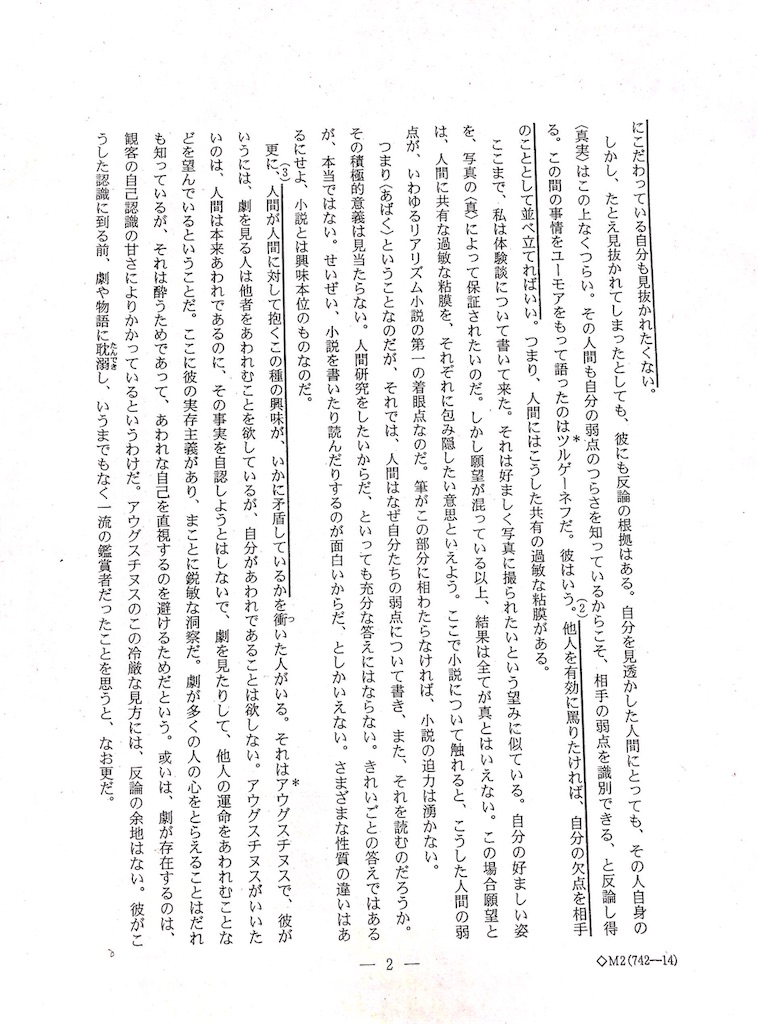 にこだわっている自分も見抜かれたくない。
しかし、たとえ見抜かれてしまったとしても、彼にも反論の根拠はある。自分を見透かした人間にとっても、その人自身の
〈真実〉はこの上なくつらい。その人間も自分の弱点のつらさを知っているからこそ、相手の弱点を識別できる、と反論し得
る。この間の事情をユーモアをもって語ったのはツルゲーネフ*だ。彼はいう。(2)他人を有効に罵りたければ、自分の欠点を相手
のこととして並べ立てればいい。つまり、人間にはこうした共有の過敏な粘膜がある。
ここまで、私は体験談について書いて来た。それは好ましく写真に撮られたいという望みに似ている。自分の好ましい姿
を、写真の〈真〉によって保証されたいのだ。しかし願望が混っている以上、結果は全てが真とはいえない。この場合願望と
は、人間に共有な過敏な粘膜を、それぞれに包み隠したい意思といえよう。ここで小説について触れると、こうした人間の弱
点が、いわゆるリアリズム小説の第一の着眼点なのだ。筆がこの部分に相わたらなければ、小説の迫力は湧かない。
つまり〈あばく〉ということなのだが、それでは、人間はなぜ自分たちの弱点について書き、また、それを読むのだろうか。
その積極的意義は見当たらない。人間研究をしたいからだ、といっても充分な答えにはならない。きれいごとの答えではある
が、本当ではない。せいぜい、小説を書いたり読んだりするのが面白いからだ、としかいえない。さまざまな性質の違いはあ
るにせよ、小説とは興味本位のものなのだ。
更に、(3)人間が人間に対して抱くこの種の興味が、いかに矛盾しているかを衝ついた人がいる。それはアウグスチヌス*で、彼が
いうには、劇を見る人は他者をあわれむことを欲しているが、自分があわれであることは欲しない。アウグスチヌスがいいた
いのは、人間は本来あわれであるのに、その事実を自認しようとはしないで、劇を見たりして、他人の運命をあわれむことな
どを望んでいるということだ。ここに彼の実存主義があり、まことに鋭敏な洞察だ。劇が多くの人の心をとらえることはだれ
も知っているが、それは酔うためであって、あわれな自己を直視するのを避けるためだという。或いは、劇が存在するのは、
観客の自己認識の甘さによりかかっているというわけだ。アウグスチヌスのこの冷厳な見方には、反論の余地はない。彼がこ
うした認識に到る前、劇や物語に耽溺たんできし、いうまでもなく一流の鑑賞者だったことを思うと、なお更だ。
— 2 —
◇M2(742—14)